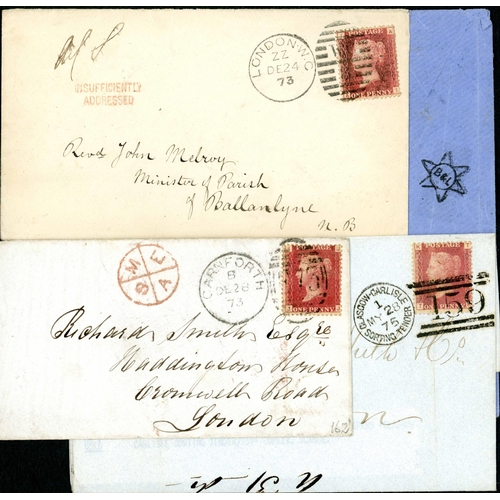 INSUFFICIENTLY
ADDRESSED
LONDON·W.C
ZZ
DE 24
73
POSTAGE
ONE PENNY
Revd John Melroy
Minister of Parish
of Ballantyne
N. B
B&L
M E
S A
CARNFORTH
B
DE 28
73
POSTAGE
ONE PENNY
Richard Smith Esqre
Haddington House
Cromwell Road
London
162
POSTAGE
ONE PENNY
GLASGOW-CARLISLE
1
MY 28
75
SORTING TENDER
159